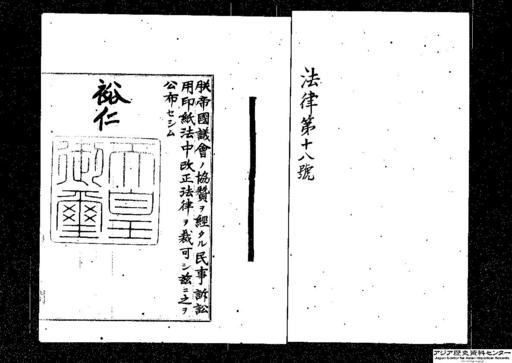 法律第十八號
朕帝國議會ノ協贊ヲ經タル民事訴訟
用印紙法中改正法律ヲ裁可シ茲ニ之ヲ
公布セシム
裕仁
天皇
御璽
アジア歴史資料センター
Japan Center for Asian Historical Records